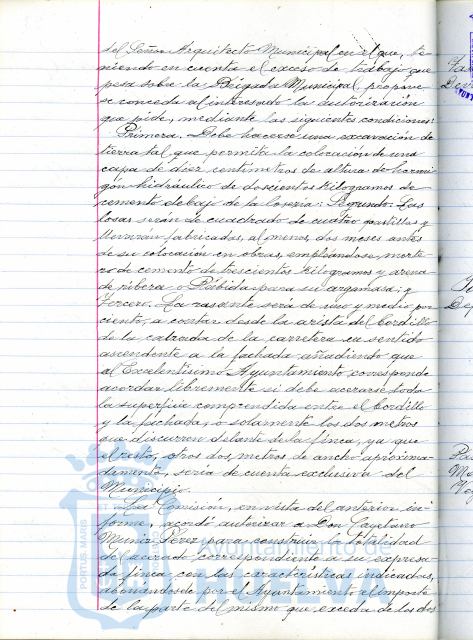 del Señor Arquitecto Municipal en el que, te-
niendo en cuenta el exceso de trabajo que
pesa sobre la Brigada Municipal, propone
se conceda al interesado la autorización
que pide, mediante las siguientes condiciones:
Primera. Debe hacerse una excavación de
tierra tal que permita la colocación de una
capa de diez centímetros de altura de hormi-
gón hidráulico de doscientos kilogramos de
cemento debajo de la losería: Segundo. Las
losas serán de cuadrado de cuatro pastillas y
fabricadas, al menos, dos meses antes
de su colocación en obras, empleándose morte-
ro de cemento de trescientos kilogramos y arena
de ribera o Rábida para su argamasa; y
Tercero. La rasante será de uno y medio por
ciento, a contar desde la arista del bordillo
de la calzada de la carretera en sentido
ascendente a la fachada añadiendo que
al Excelentísimo Ayuntamiento corresponde
acordar libremente si debe acerarse toda
la superficie comprendida entre el bordillo
y la fachada, o solamente los dos metros
que discurren delante de la finca, ya que
el resto, otros dos metros de ancho aproxima-
damente, sería de cuenta exclusiva del
Municipio.
La Comisión, en vista del anterior in-
forme, acordó autorizar a Don Cayetano
Muniz Pérez para construir la totalidad
del acerado correspondiente a su expresa-
da finca con las características indicadas,
abonándosele por el Ayuntamiento el importe
de la parte del mismo que exceda de los dos
PORTUS MARIS